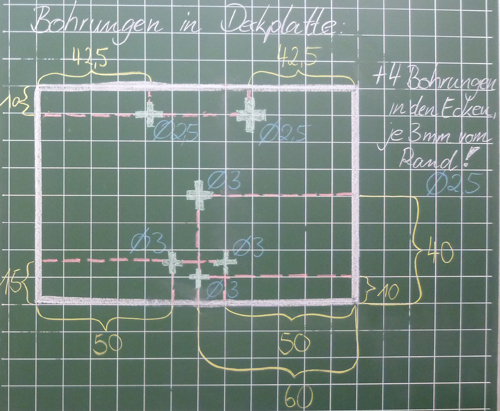 Bohrungen in Dekplatte:
42,5
42,5
+4 Bohrungen
in den Ecken,
je 3mm vom
Rand!
Ø2,5
10
Ø2,5
Ø2,5
Ø3
40
Ø3
Ø3
15
Ø3
10
50
50
60